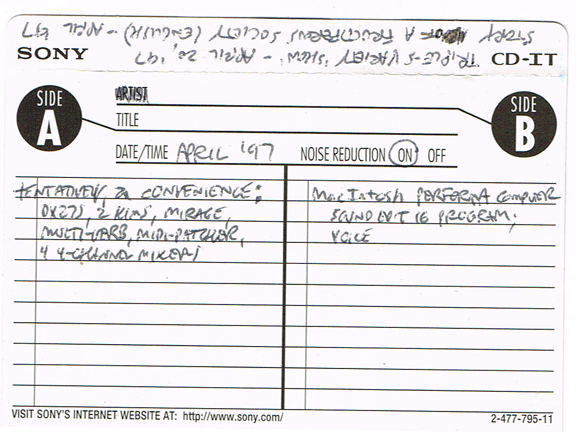 TRIPLE-S VARIETY 'SHOW' - APRIL 20, '97
STORY OF A FRUCTIFEROUS SOCIETY (ENGLISH) - APRIL '97
SONY
CD-IT
SIDE A
ARTIST
TITLE
SIDE B
DATE/TIME APRIL '97
NOISE REDUCTION ON OFF
tENTATIVELY, a CONVENIENCE:
DX27S, 2 MIRAGE,
MULTI-VERB, MIDI-PATCHER,
4 4-CHANNEL
MacIntosh PERFORMA COMPUTER
SOUND EDIT 16 PROGRAM,
VOICE
VISIT SONY'S INTERNET WEBSITE AT: http://www.sony.com/
2-477-795-11